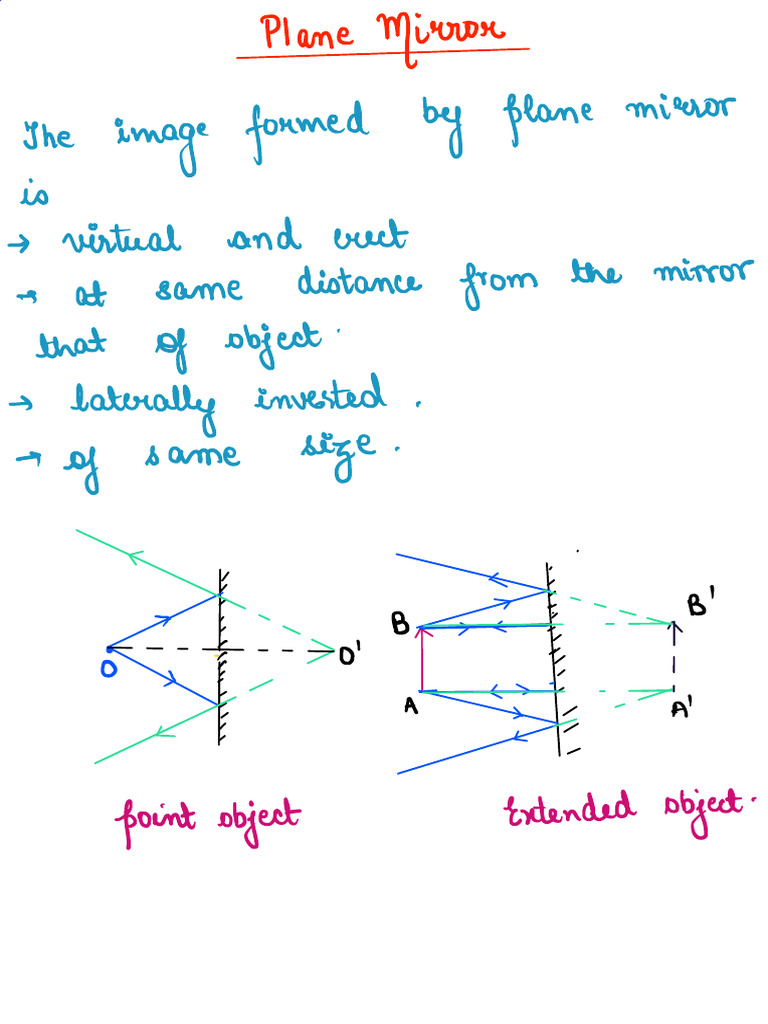 Plane Mirror
The image formed by plane mirror
is
→ virtual and erect
→ at same distance from the mirror
that of object.
→ laterally invested.
→ of same size.
B'
B
O O'
A A'
point object Extended object.